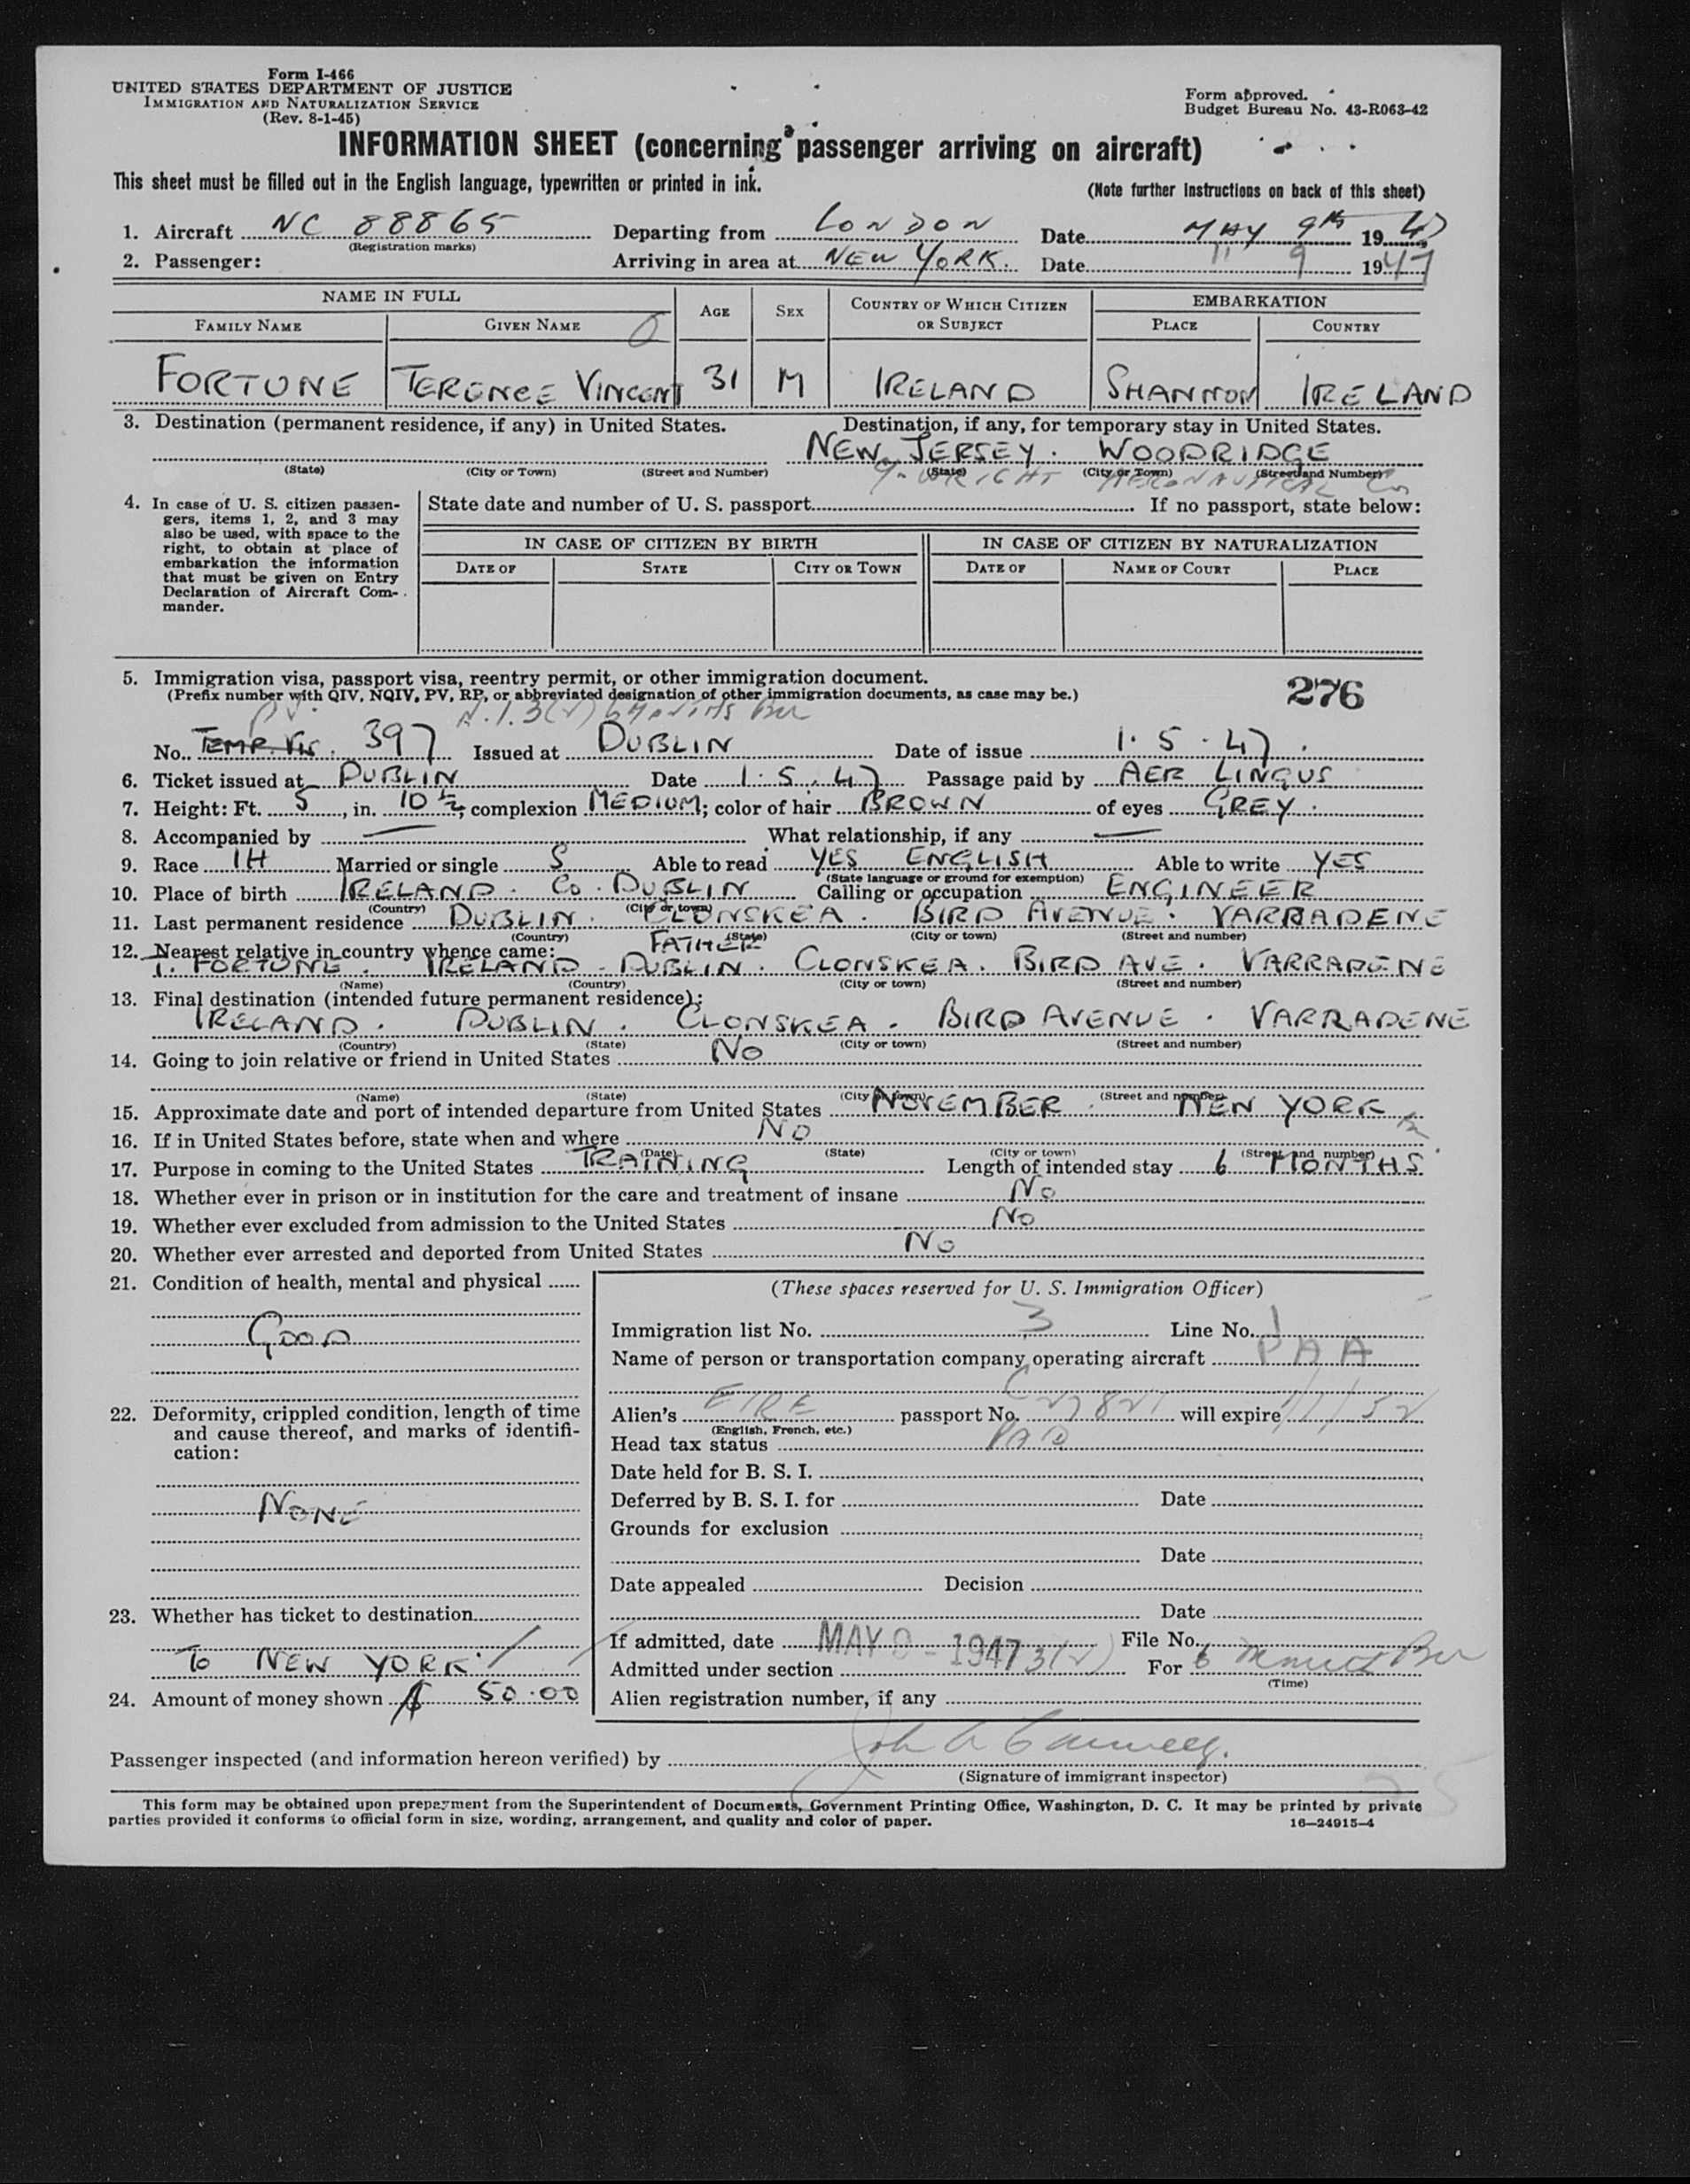 Form I-466
UNITED STATES DEPARTMENT OF JUSTICE
IMMIGRATION AND NATURALIZATION SERVICE
(Rev. 8-1-45)
Form approved.
Budget Bureau No. 43-R063-42
INFORMATION SHEET (concerning passenger arriving on aircraft)
This sheet must be filled out in the English language, typewritten or printed in ink.
(Note further instructions on back of this sheet)
1. Aircraft NC 88865 Departing from LONDON Date MAY 9th 1947
(Registration marks)
2. Passenger: Arriving in area at NEW YORK. Date 11 9 1947
NAME IN FULL AGE SEX COUNTRY OF WHICH CITIZEN OR SUBJECT EMBARKATION
FAMILY NAME GIVEN NAME PLACE COUNTRY
FORTUNE TERENCE VINCENT 31 M IRELAND SHANNON IRELAND
3. Destination (permanent residence, if any) in United States. Destination, if any, for temporary stay in United States.
NEW JERSEY. WOODRIDGE
(State) (City or Town) (Street and Number) (State) (City or Town) (Street and Number)
WRIGHT AERONAUTICAL Co
4. In case of U. S. citizen passengers, items 1, 2, and 3 may also be used, with space to the right, to obtain at place of embarkation the information that must be given on Entry Declaration of Aircraft Commander.
State date and number of U. S. passport If no passport, state below:
IN CASE OF CITIZEN BY BIRTH IN CASE OF CITIZEN BY NATURALIZATION
DATE OF STATE CITY OR TOWN DATE OF NAME OF COURT PLACE
5. Immigration visa, passport visa, reentry permit, or other immigration document.
(Prefix number with QIV, NQIV, PV, RP, or abbreviated designation of other immigration documents, as case may be.)
276
P.V. 3(2) 6 months
No. TEMP. VIS. 397 Issued at DUBLIN Date of issue 1.5.47.
6. Ticket issued at DUBLIN Date 1.5.47 Passage paid by AER LINGUS
7. Height: Ft. 5, in. 10½; complexion MEDIUM; color of hair BROWN of eyes GREY.
8. Accompanied by — What relationship, if any —
9. Race IH Married or single S Able to read YES ENGLISH Able to write YES
(State language or ground for exemption)
10. Place of birth IRELAND. Co. DUBLIN Calling or occupation ENGINEER
(Country) (City or town)
11. Last permanent residence DUBLIN. CLONSKEA. BIRD AVENUE. VARRADENE
(Country) (State) (City or town) (Street and number)
12. Nearest relative in country whence came: FATHER
T. FORTUNE. IRELAND. DUBLIN. CLONSKEA. BIRD AVE. VARRADENE
(Name) (Country) (City or town) (Street and number)
13. Final destination (intended future permanent residence):
IRELAND. DUBLIN. CLONSKEA. BIRD AVENUE. VARRADENE
(Country) (State) (City or town) (Street and number)
14. Going to join relative or friend in United States NO
(Name) (State) (City or town) (Street and number)
15. Approximate date and port of intended departure from United States NOVEMBER. NEW YORK
16. If in United States before, state when and where NO
(Date) (State) (City or town) (Street and number)
17. Purpose in coming to the United States TRAINING Length of intended stay 6 MONTHS.
18. Whether ever in prison or in institution for the care and treatment of insane No
19. Whether ever excluded from admission to the United States No
20. Whether ever arrested and deported from United States No
21. Condition of health, mental and physical
GOOD
22. Deformity, crippled condition, length of time and cause thereof, and marks of identification:
NONE
23. Whether has ticket to destination
TO NEW YORK
24. Amount of money shown $ 50.00
(These spaces reserved for U. S. Immigration Officer)
Immigration list No. 3 Line No. 1
Name of person or transportation company operating aircraft PAA
Alien's EIRE passport No. C 27821 will expire 1/1/52
(English, French, etc.)
Head tax status PAID
Date held for B. S. I.
Deferred by B. S. I. for Date
Grounds for exclusion
Date
Date appealed Decision
Date
If admitted, date MAY 9 - 1947 File No.
Admitted under section 3(2) For 6 months
(Time)
Alien registration number, if any
Passenger inspected (and information hereon verified) by
(Signature of immigrant inspector)
This form may be obtained upon prepayment from the Superintendent of Documents, Government Printing Office, Washington, D. C. It may be printed by private
parties provided it conforms to official form in size, wording, arrangement, and quality and color of paper.
16—24915-4